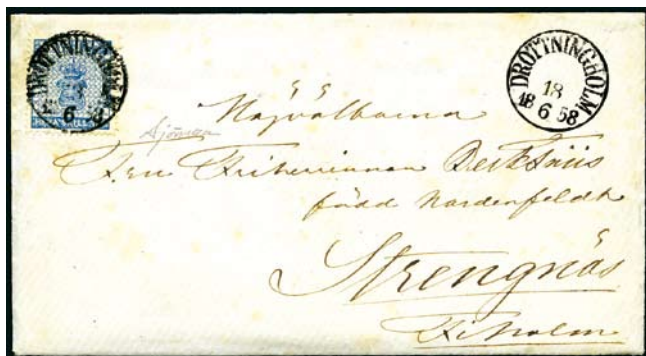 DROTTNINGHOLM
18
6
DROTTNINGHOLM
18
18 6 58
Högvälborna
Sjöman
Fru Friherrinnan
född Nordenfeldt
Strengnäs
Fiholm